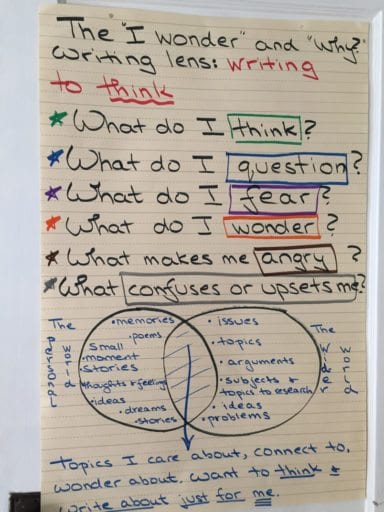 The "I wonder" and "Why?"
writing lens: writing
to think
What do I think?
What do I question?
What do I fear?
What do I wonder?
What makes me angry?
What confuses or upsets me?
The personal world
• memories
• poems
small
• moment
stories
thoughts & feelings
• ideas
• dreams
• stories
• issues
• topics
• arguments
• subjects &
topics to research
• ideas
• problems
The wider world
Topics I care about, connect to,
wonder about. want to think &
write about just for me.